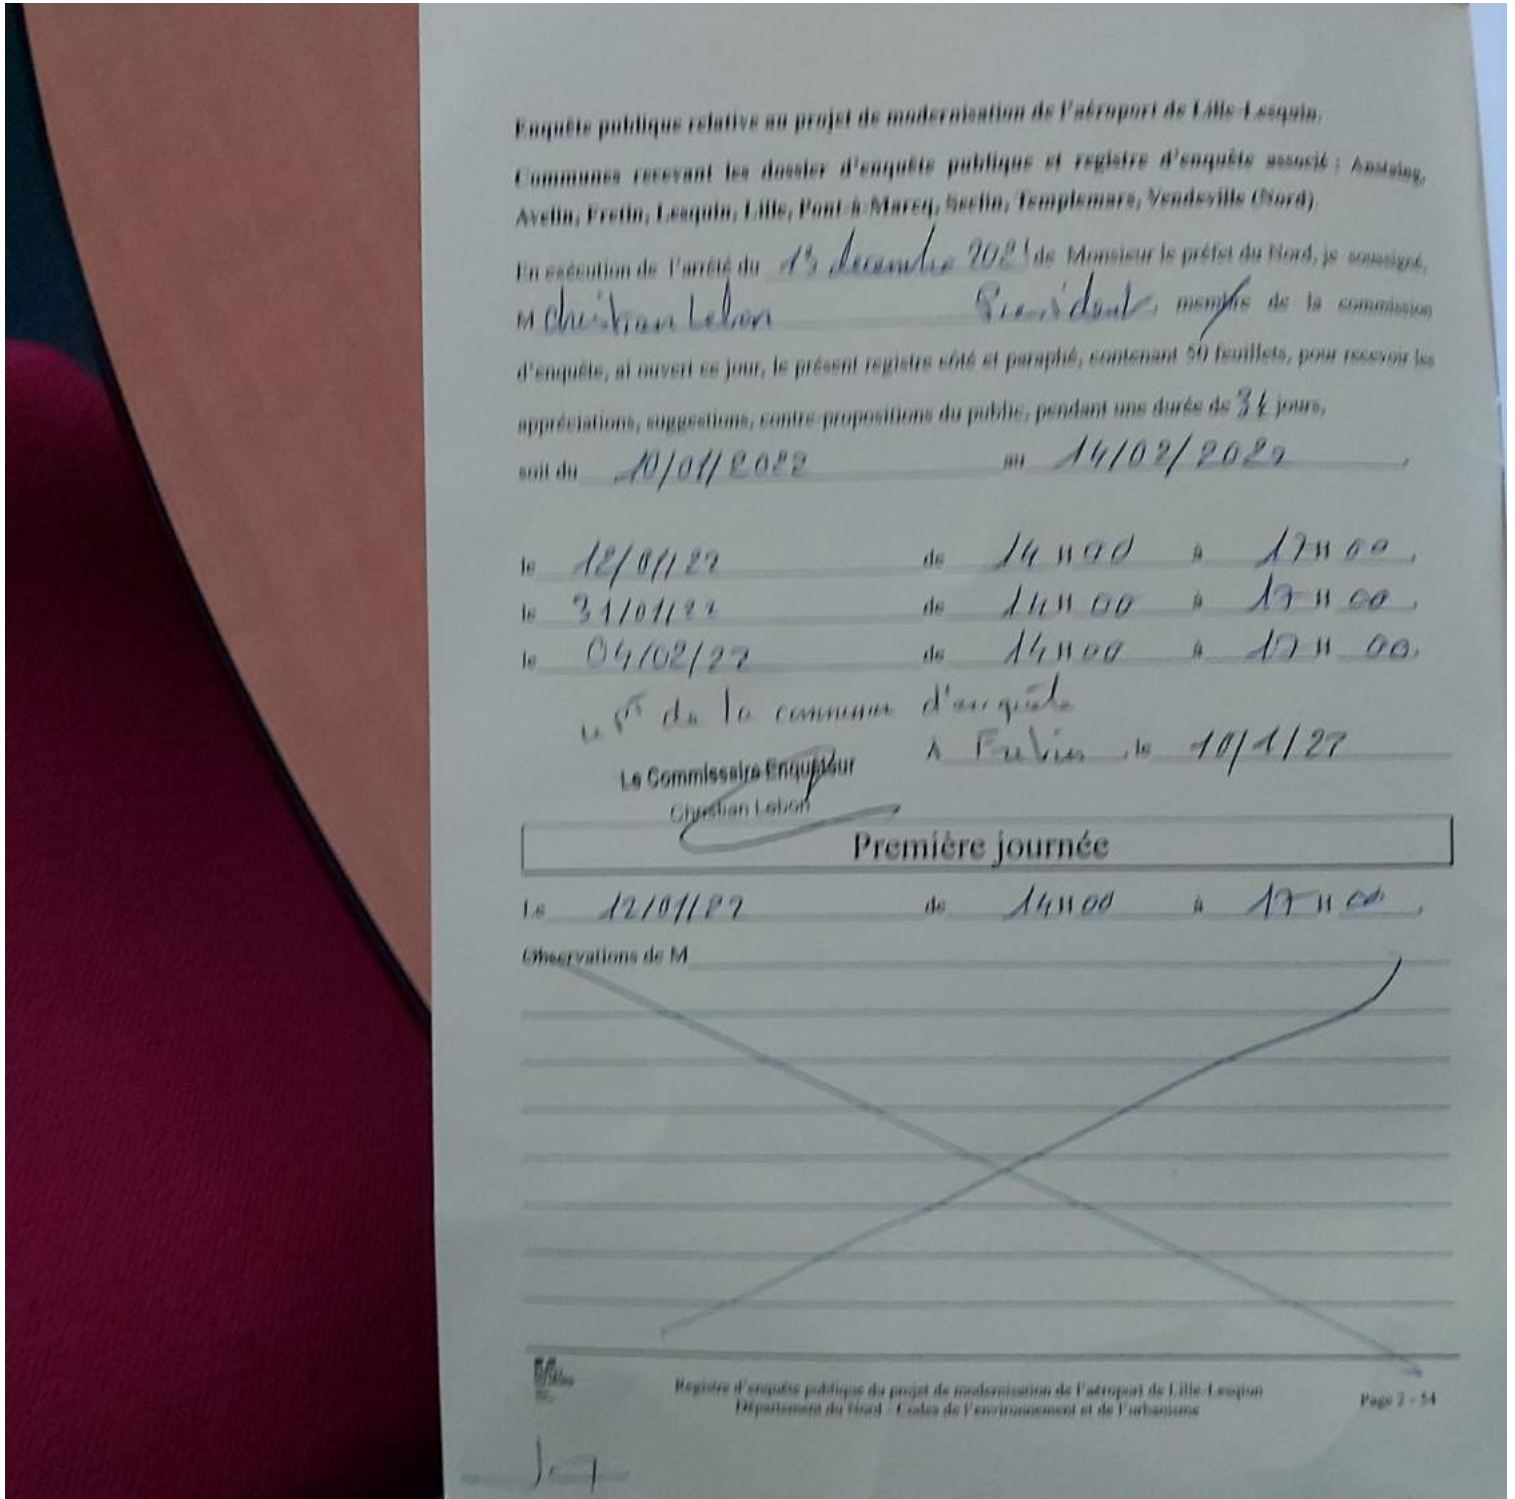 Enquête publique relative au projet de modernisation de l'aéroport de Lille-Lesquin.
Communes recevant les dossier d'enquête publique et registre d'enquête associé : Anstaing,
Avelin, Fretin, Lesquin, Lille, Pont-à-Marcq, Seclin, Templemars, Vendeville (Nord)
En exécution de l'arrêté du 13 decembre 2021 de Monsieur le préfet du Nord, je soussigné,
M Christian Lebon Président, membre de la commission
d'enquête, ai ouvert ce jour, le présent registre côté et paraphé, contenant 50 feuillets, pour recevoir les
appréciations, suggestions, contre-propositions du public, pendant une durée de jours,
soit du 10/01/2022 au 14/02/2022,
le 12/01/22 de 14 H 00 à 17 H 00,
le 31/01/22 de 14 H 00 à 17 H 00,
le 04/02/22 de 14 H 00 à 17 H 00.
de la d'enquête
à Fretin, le 10/1/22
Le Commissaire Enquêteur
Christian Lebon
Première journée
Le 12/01/22 de 14 H 00 à 17 H 00,
Observations de M
Registre d'enquête publique du projet de modernisation de l'aéroport de Lille-Lesquin
Département du Nord - Codes de l'environnement et de l'urbanisme
Page 2 - 54